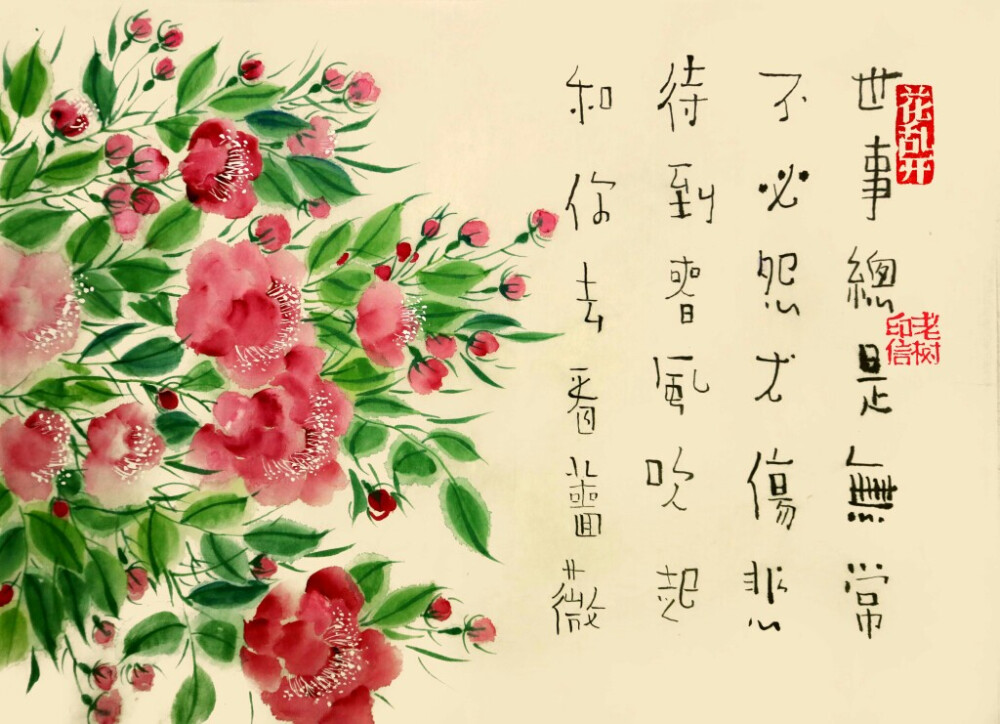 世事總是無常
不必怨尤傷悲
待到春風吹起
和你去看薔薇
花乱开
老树印信